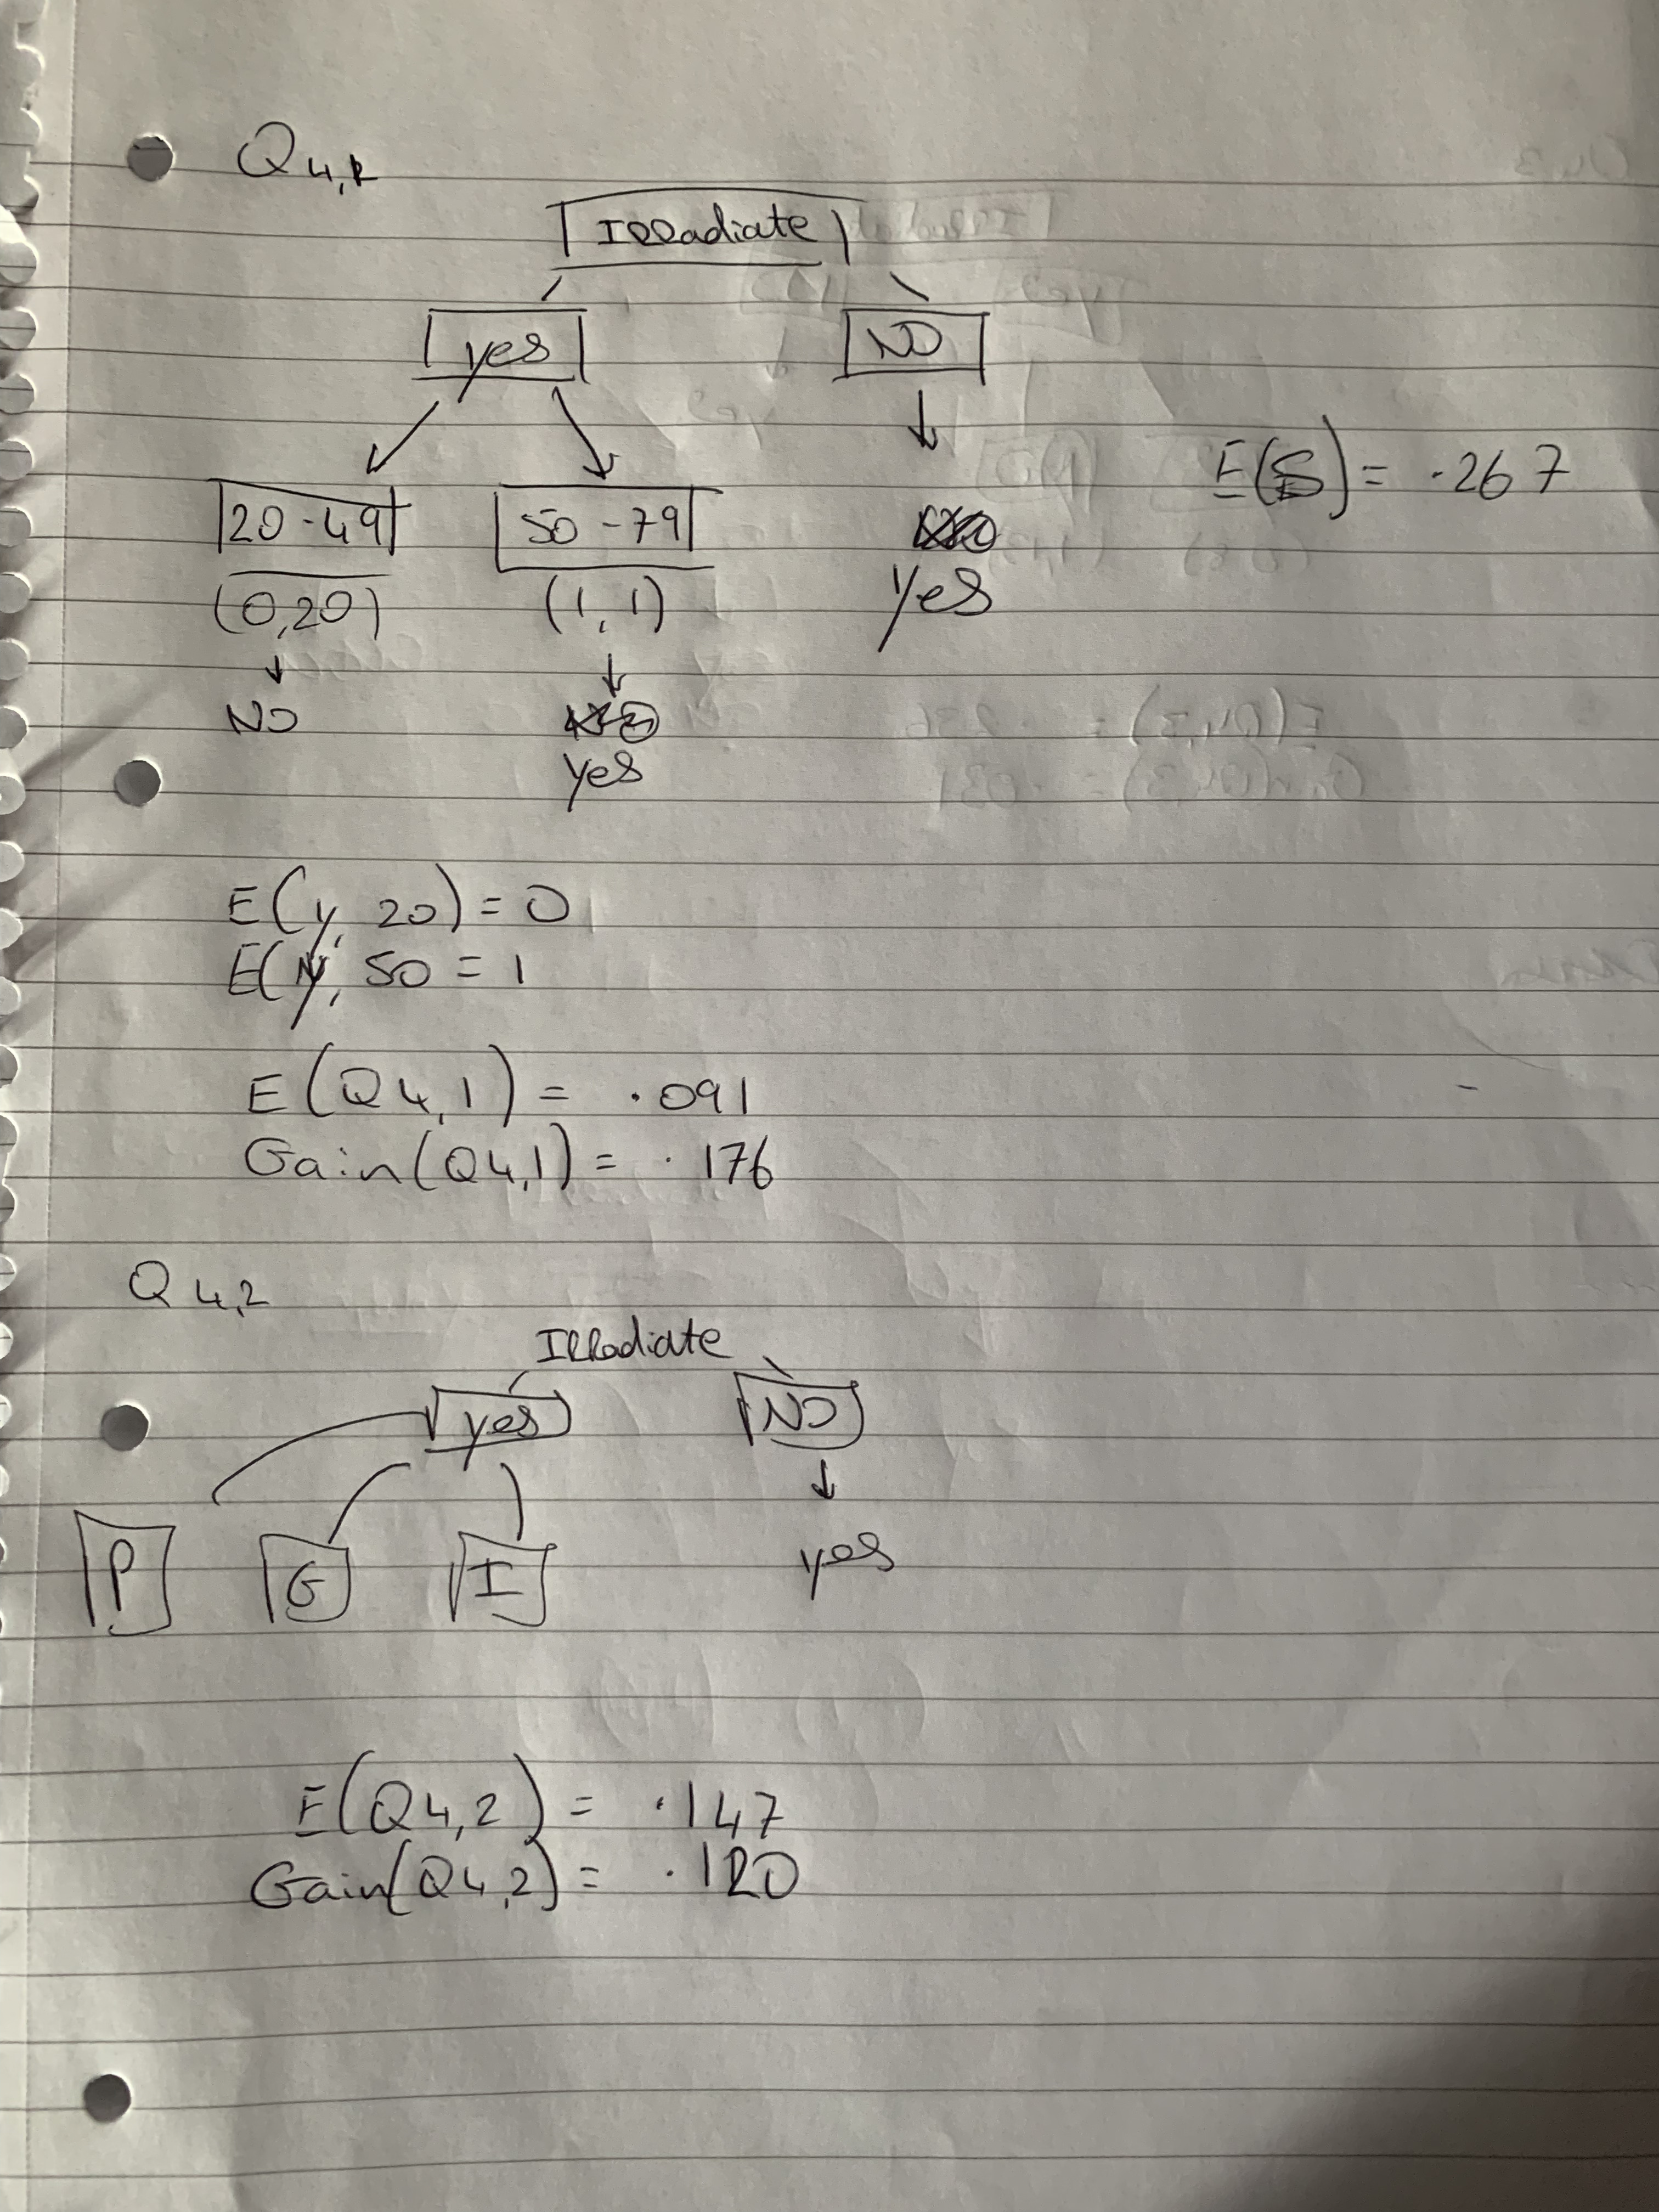 Q4,1
Irradiate
yes NO
E(S) = .267
20-49 50-79
yes
(0,20) (1,1)
NO
yes
E(y, 20) = 0
E(y, 50 = 1
E(Q4,1) = .091
Gain(Q4,1) = .176
Q4,2
Irradiate
yes NO
P G I yes
E(Q4,2) = .147
Gain(Q4,2) = .120